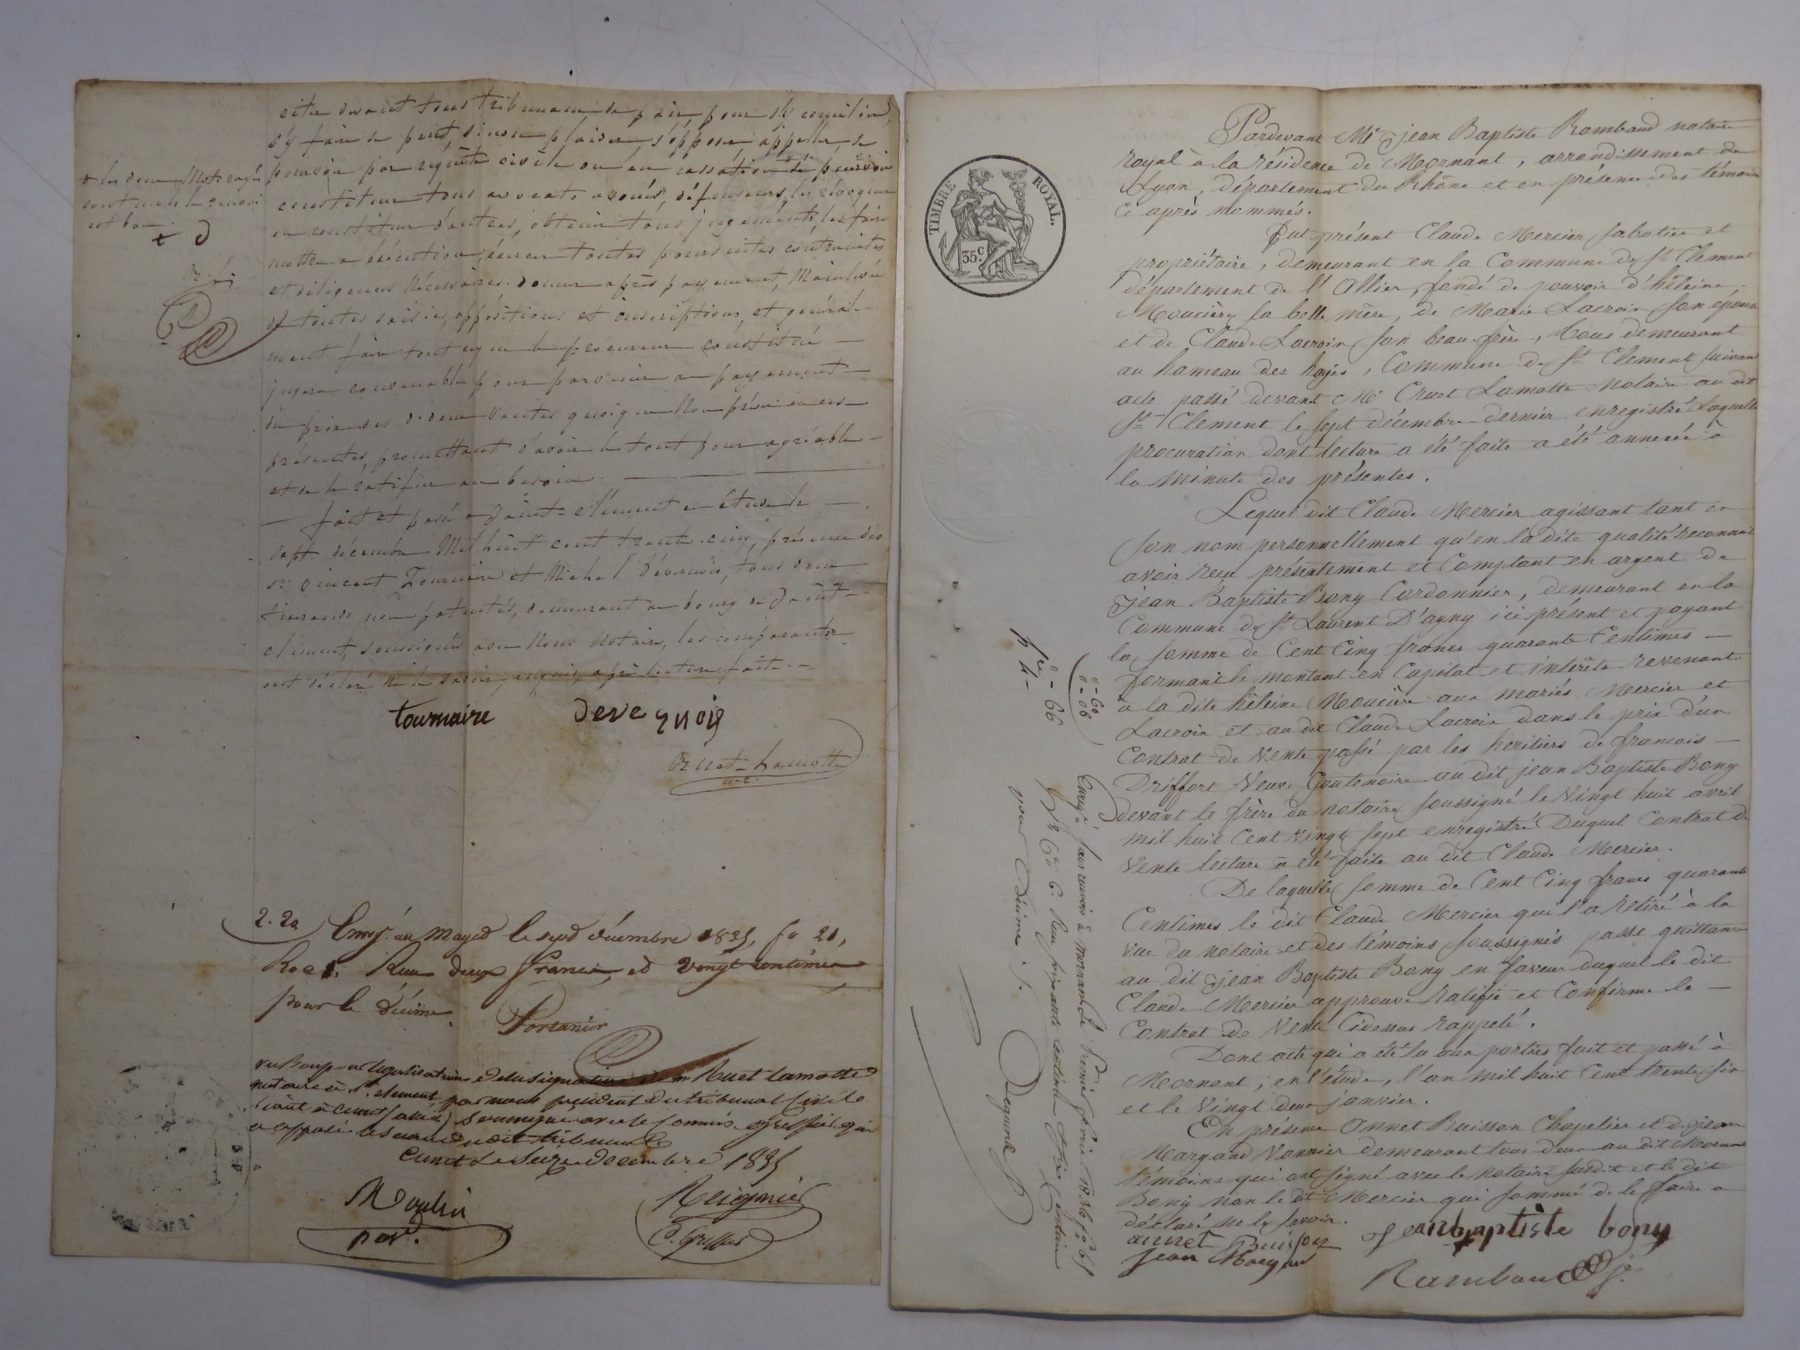 citer devant tous tribunaux de paix, pour s'y concilier,
s'y faire se peut, sinon plaider, s'opposer, appeller, se
pourvoir par requête civile ou en cassation
constituer tous avocats, avoués, défenseurs, les révoquer
en constituer d'autres, obtenir tous jugements, les faire
mettre a exécution, exercer toutes poursuites contraintes
et diligences nécessaires. donner après payement, Mainlevée
de toutes saisies, oppositions et inscriptions, et générale-
ment faire tout ce que le procureur constitué —
jugera convenable pour parvenir au payement —
du prix des ventes quoique non prévu en ces
présentes, promettant d'avoir le tout pour agréable —
et de le ratifier au besoin.
— fait et passé a Saint-Clément en l'étude le —
sept décembre Mil huit cent trente cinq, présence des
srs vincent Tournaire et Michel Devernois, tous deux
non patentés, demeurant au bourg de Saint-
clément, soussignés avec Nous Notaire, les comparants
ont déclaré ne le savoir, requis, après lecture faite. —
+ les deux Mots rayés
sont nuls
tournaire
devernois
Cruet-Lamotte
2.20
Enregé. au Mayet le sept décembre 1835, fo 21,
Reçu deux francs, et vingt centimes
pour le décimes.
vu pour légalisation de la signature de Mr Cruet Lamotte
notaire à St. clement par nous président du tribunal civil
séant à Cusset (allier) soussigné avec le commis greffier qui
a apposé le sceau du dit tribunal
Cusset le Seize Decembre 1835
Pardevant Me jean Baptiste Rambaud notaire
royal à la résidence de Mornant, arrondissement de
Lyon, département du Rhône et en présence des témoins
ci après nommés.
TIMBRE ROYAL.
35c
Fut présent Claude Mercier sabotier et
propriétaire, demeurant en la Commune de St Clement
département de l'Allier, fondé de pouvoir d'héleine
Moucière sa belle mère, de Marie Lacroix son epouse
et de Claude Lacroix son beau frère, tous demeurant
au hameau des hajes, Commune de St Clement suivant
acte passé devant Me Cruet Lamotte Notaire au dit
St Clement le sept décembre dernier enregistré Laquelle
procuration dont lecture a été faite a été annexée à
la minute des présentes.
Lequel dit Claude Mercier agissant tant en
son nom personnellement qu'en la dite qualité reconnait
avoir reçu présentement et Comptant en argent de
Jean Baptiste Bony Cordonnier, demeurant en la
Commune de St Laurent D'agny ici présent et payant
la somme de Cent Cinq francs quarante Centimes —
formant le montant en Capital et intérêts revenant
à la dite héleine Moucière aux mariés Mercier et
Lacroix et au dit Claude Lacroix dans le prix d'un
Contrat de vente passé par les héritiers de francois —
Driffort Veuve Goutenoire au dit jean Baptiste Bony
devant le frère du notaire soussigné le Vingt huit avril
mil huit Cent Vingt sept enregistré Duquel Contrat de
Vente lecture a été faite au dit Claude Mercier.
De laquelle somme de Cent Cinq francs quarante
Centimes le dit Claude Mercier qui l'a retiré à la
vue du notaire et des témoins soussignés passe quittance
au dit Jean Baptiste Bony en faveur duquel le dit
Claude Mercier approuve ratifie et Confirme le —
Contrat de Vente Cidessus rappelé.
Dont acte qui a été lu aux parties fait et passé à
Mornant, en l'étude, l'an mil huit Cent trente six
et le Vingt deux janvier.
En présence Annet Buisson Chapelier et de Jean
Margand Vannier demeurant tous deux au dit Mornant
témoins qui ont signé avec le notaire susdit et le dit
Bony non le dit Mercier qui sommé de le faire a
déclaré ne le savoir.
annet Buisson
jeanbaptiste bony
Jean Margan
Rambaud
0-60
0-06
0-66
Enregé sans renvois à mornant le Premier février 1836 fo
Reçu soixante centimes
pour décime.